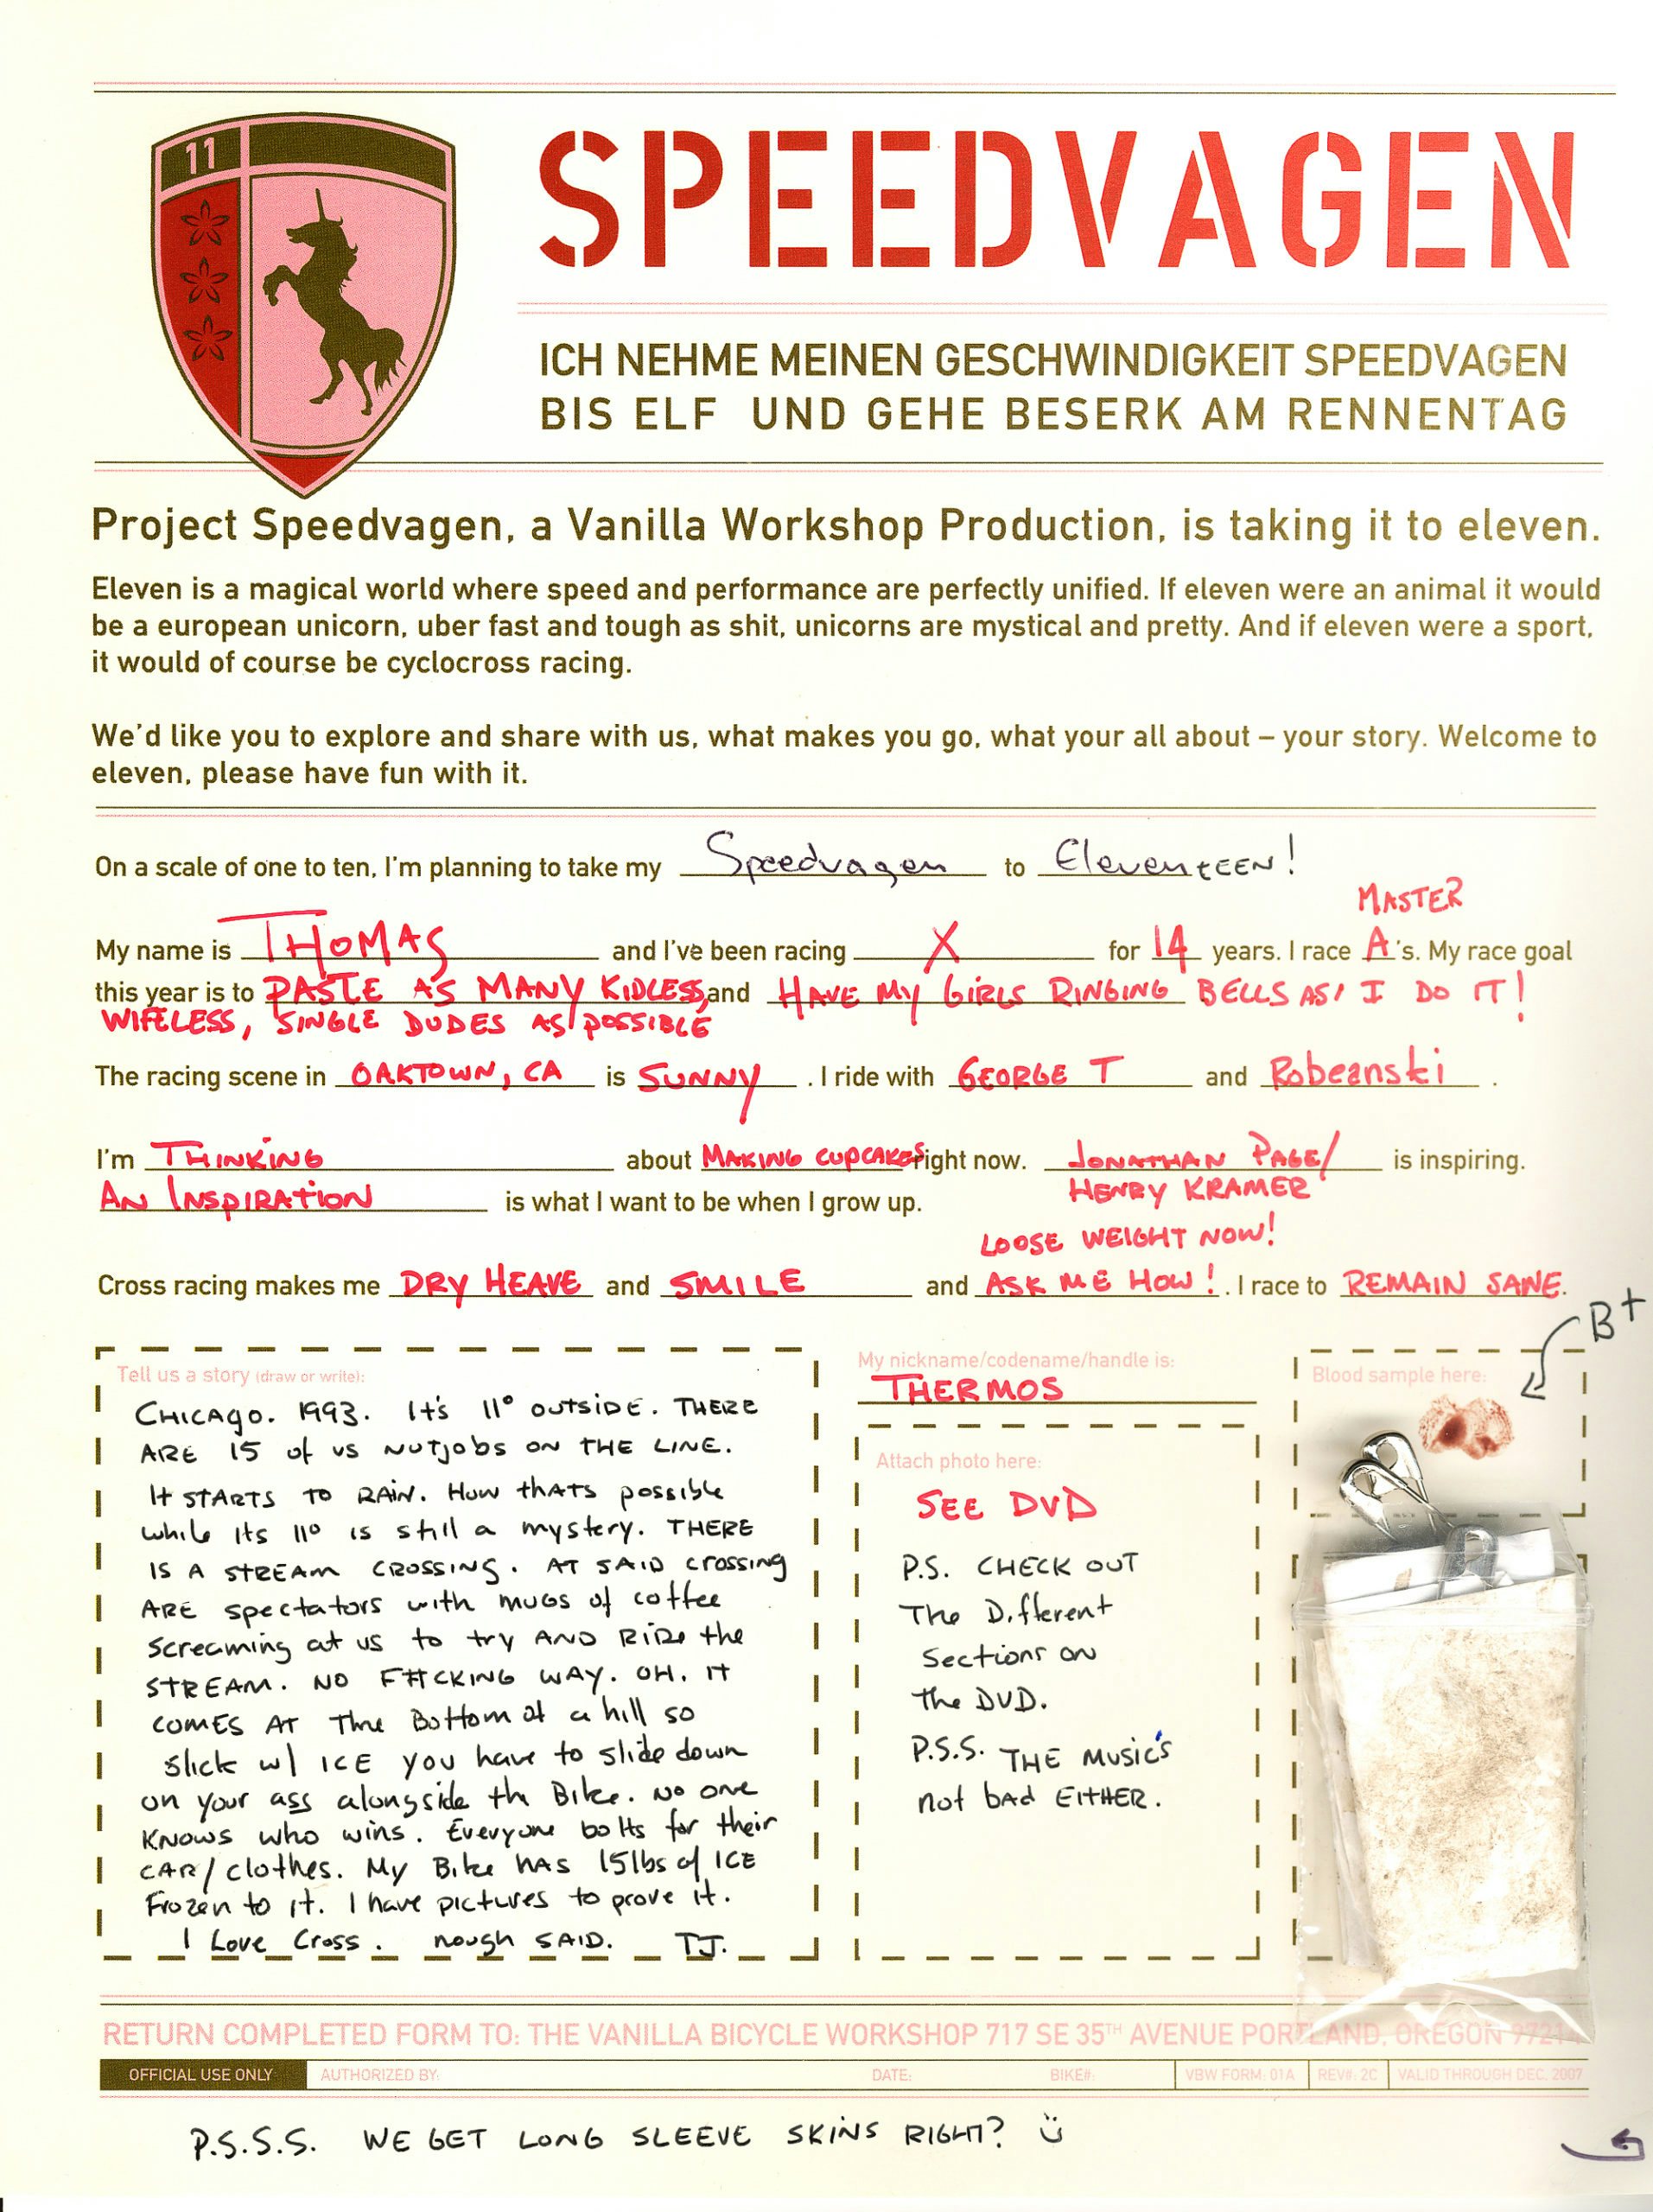 11
SPEEDVAGEN
ICH NEHME MEINEN GESCHWINDIGKEIT SPEEDVAGEN
BIS ELF UND GEHE BESERK AM RENNENTAG
Project Speedvagen, a Vanilla Workshop Production, is taking it to eleven.
Eleven is a magical world where speed and performance are perfectly unified. If eleven were an animal it would
be a european unicorn, uber fast and tough as shit, unicorns are mystical and pretty. And if eleven were a sport,
it would of course be cyclocross racing.
We'd like you to explore and share with us, what makes you go, what your all about – your story. Welcome to
eleven, please have fun with it.
On a scale of one to ten, I'm planning to take my Speedvagen to ElevenTEEN!
MASTER
My name is THOMAS and I've been racing X for 14 years. I race A's. My race goal
this year is to PASTE AS MANY KIDLESS, and HAVE MY GIRLS RINGING BELLS AS I DO IT!
WIFELESS, SINGLE DUDES AS POSSIBLE
The racing scene in OAKTOWN, CA is SUNNY. I ride with GEORGE T and Robeanski.
I'm THINKING about MAKING CUPCAKES right now. JONATHAN PAGE/ is inspiring.
HENRY KRAMER
AN INSPIRATION is what I want to be when I grow up.
LOOSE WEIGHT NOW!
Cross racing makes me DRY HEAVE and SMILE and ASK ME HOW!. I race to REMAIN SANE.
B+
Tell us a story (draw or write):
CHICAGO. 1993. It's 11° OUTSIDE. THERE
ARE 15 of us NUTJOBS ON THE LINE.
It STARTS TO RAIN. HOW thATS possible
while its 11° is still a mystery. THERE
IS A STREAM CROSSING. AT SAID crossing
ARE spectators with MUGS of coffee
Screaming at us to try AND RIDE the
STREAM. NO F#CKING WAY. OH. IT
COMES AT The Bottom of a hill so
slick w/ ICE you have to slide down
on your ass alongside the Bike. NO ONE
KNOWS who wins. Everyone bolts for their
CAR/clothes. My Bike HAS 15lbs of ICE
Frozen to it. I have pictures to prove it.
I Love Cross. nough SAID. TJ.
My nickname/codename/handle is:
THERMOS
Attach photo here:
SEE DVD
P.S. CHECK OUT
The Different
Sections on
the DVD.
P.S.S. THE MUSIC'S
not bad EITHER.
Blood sample here:
RETURN COMPLETED FORM TO: THE VANILLA BICYCLE WORKSHOP 717 SE 35TH AVENUE PORTLAND, OREGON
OFFICIAL USE ONLY AUTHORIZED BY: DATE: BIKE#: VBW FORM: 01A REV#: 2C VALID THROUGH DEC. 2007
P.S.S.S. WE GET LONG SLEEVE SKINS RIGHT? :)